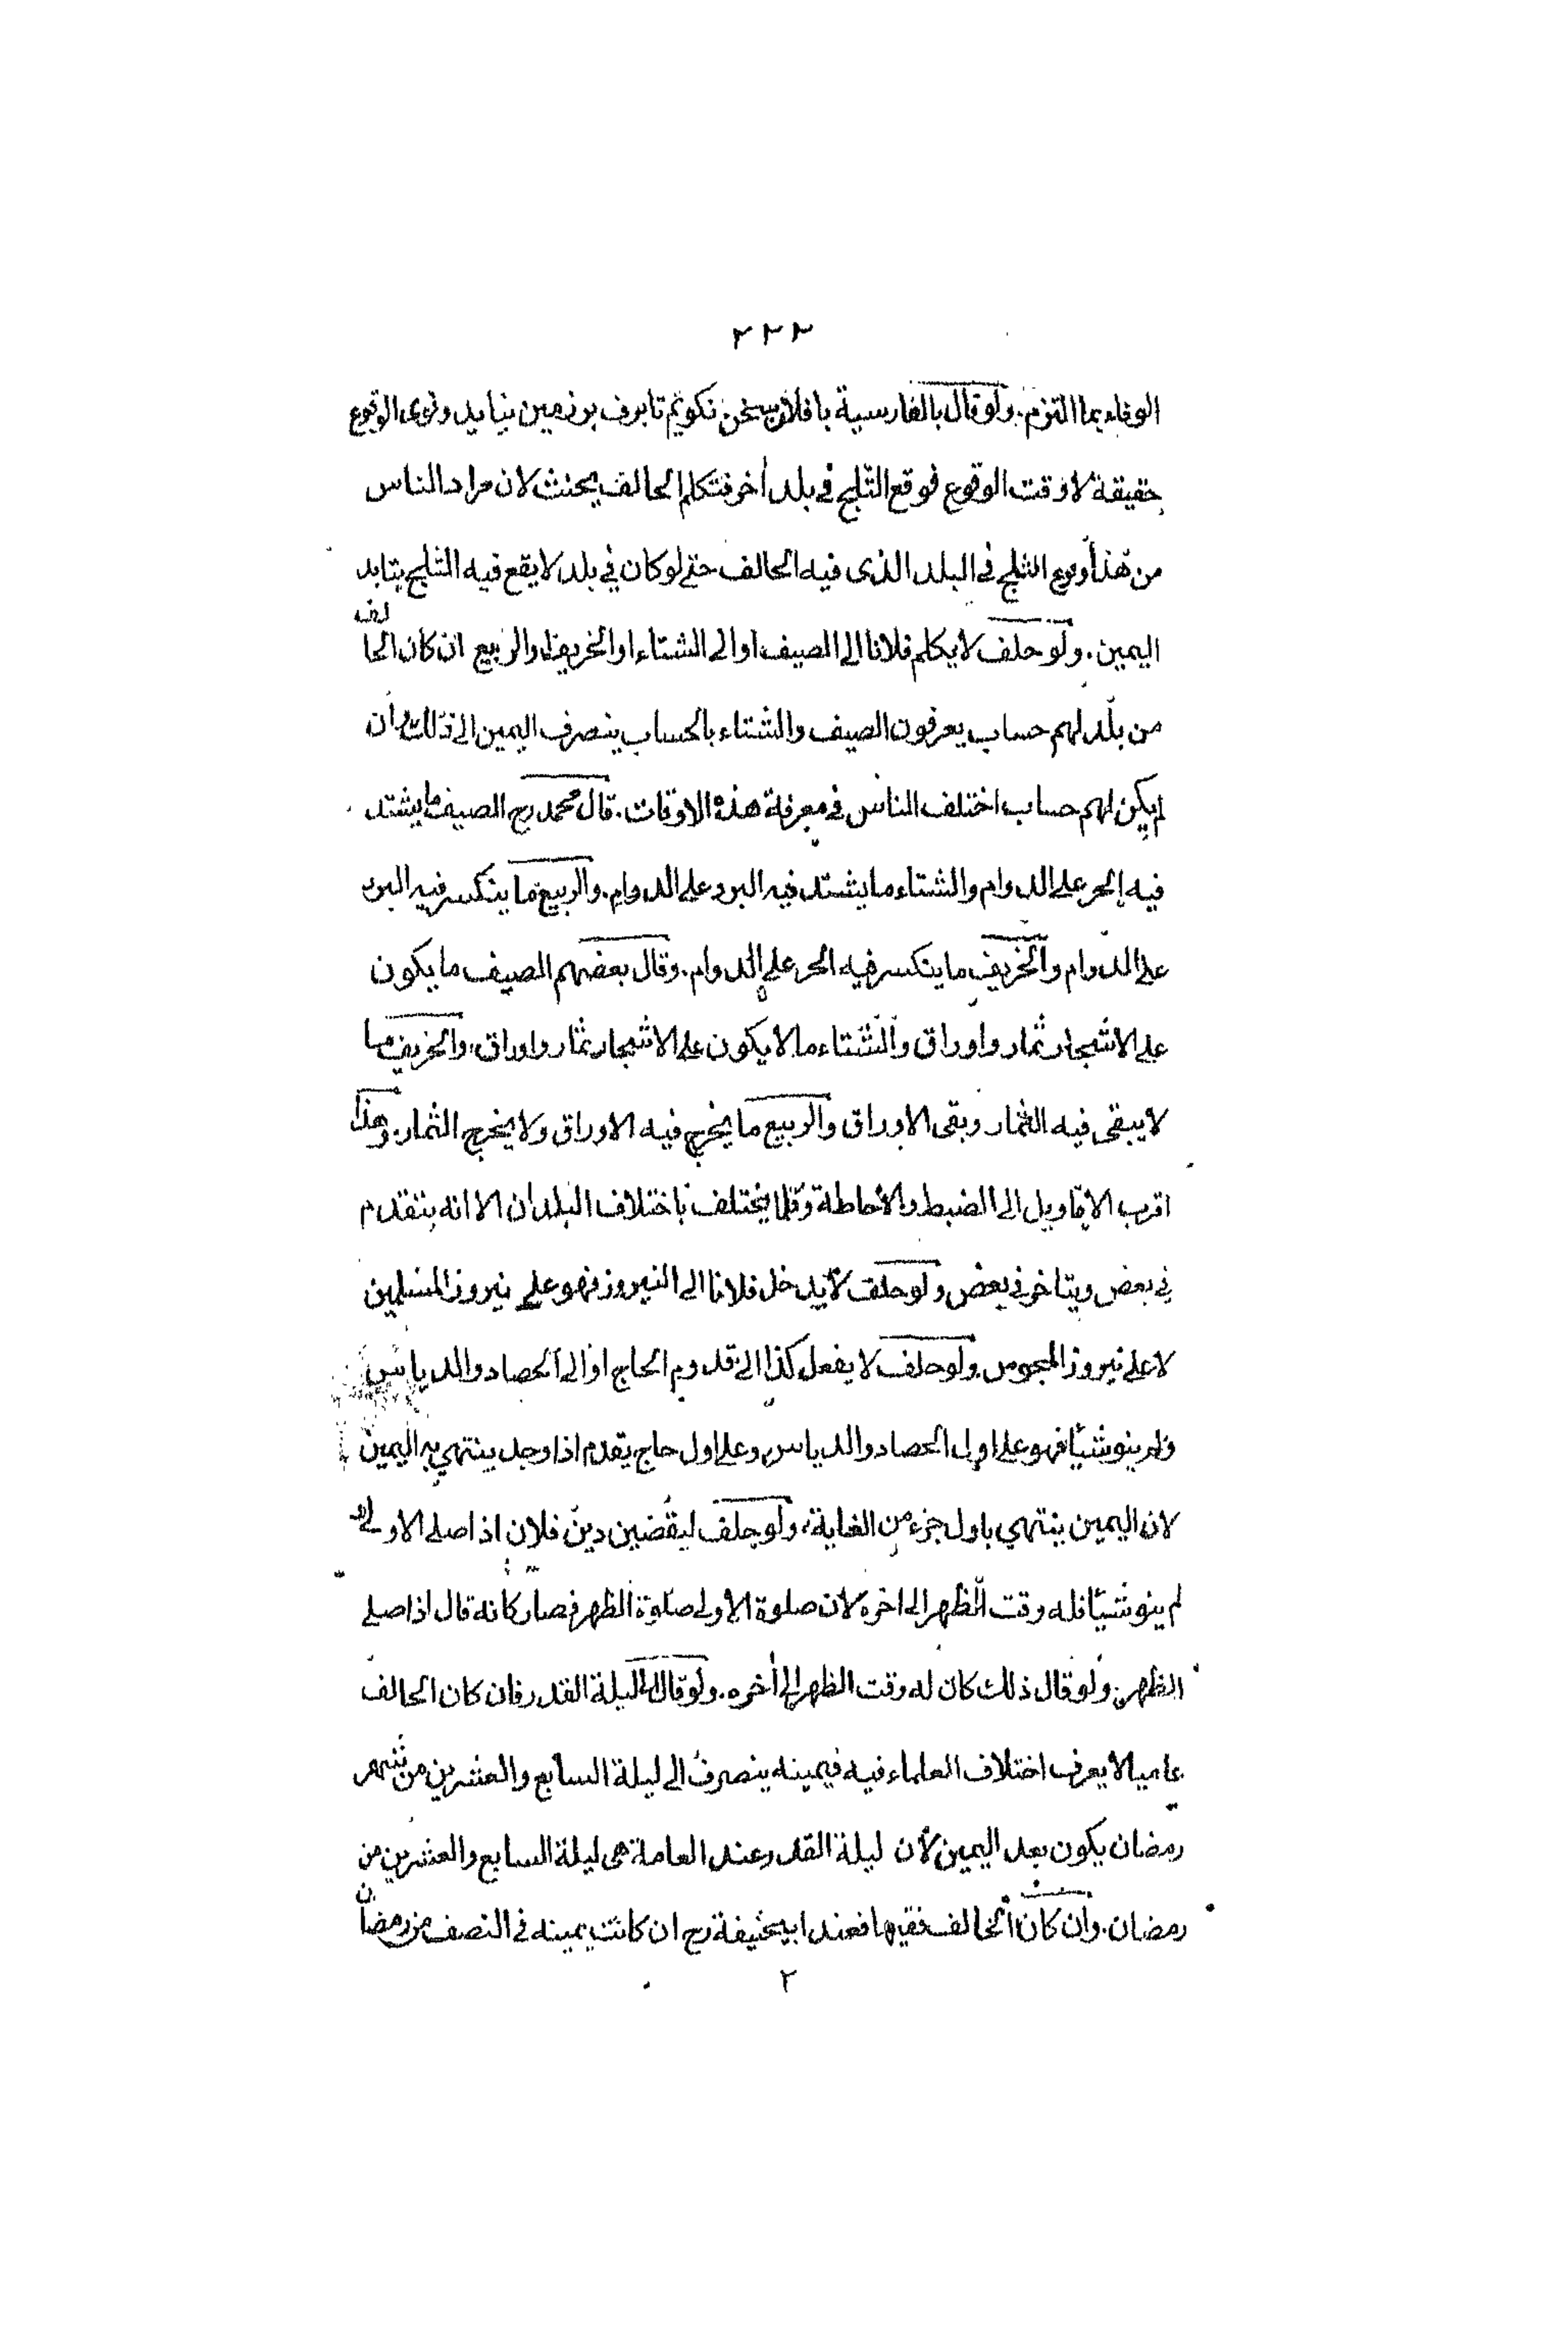 ٢٢٢
الوفاء بما التزم. ولو قال بالفارسية با فلان سخن نكويم تا برف بر زمين نيايد ونوى الوقوع
حقيقة لا وقت الوقوع فوقع الثلج في بلد أخر فتكلم الحالف يحنث لان مراد الناس
من هذا وقوع الثلج في البلد الذى فيه الحالف حتى لو كان في بلد لا يقع فيه الثلج يتابد
اليمين. ولو حلف لا يكلم فلانا الى الصيف او الى الشتاء او الخريف او الربيع ان كان الحالف
من بلد لهم حساب يعرفون الصيف والشتاء بالحساب ينصرف اليمين الى ذلك وان
لم يكن لهم حساب اختلف الناس في معرفة هذه الاوقات. قال محمد رح الصيف ما يشتد
فيه الحر على الدوام والشتاء ما يشتد فيه البرد على الدوام. والربيع ما ينكسر فيه البرد
على الدوام والخريف ما ينكسر فيه الحر على الدوام. وقال بعضهم الصيف ما يكون
على الاشجار ثمار واوراق والشتاء ما لا يكون على الاشجار ثمار واوراق، والخريف ما
لا يبقى فيه الثمار وبقى الاوراق والربيع ما يخرج فيه الاوراق ولا يخرج الثمار. وهذا
اقرب الاقاويل الى الضبط والاحاطة وقلما يختلف باختلاف البلدان الا انه يتقدم
في بعض ويتاخر في بعض ولو حلف لا يدخل فلانا الى النيروز فهو على نيروز المسلمين
لا على نيروز المجوس. ولو حلف لا يفعل كذا الى قدوم الحاج او الى الحصاد والدياس
ولم ينو شيئا فهو على اول الحصاد والدياس وعلى اول حاج يقدم اذا وجد ينتهي به اليمين
لان اليمين ينتهي باول جزء من الغاية، ولو حلف ليقضين دين فلان اذا صلى الاولى
لم ينو شيئا فله وقت الظهر الى اخره لان صلوة الاولى صلوة الظهر فصار كانه قال اذا صلى
الظهر. ولو قال ذلك كان له وقت الظهر الى أخره. ولو قال الى ليلة القدر فان كان الحالف
عاميا لا يعرف اختلاف العلماء فيه فيمينه ينصرف الى ليلة السابع والعشرين من شهر
رمضان يكون بعد اليمين لأن ليلة القدر عند العامة هى ليلة السابع والعشرين من
رمضان. وان كان الحالف فقيها فعند ابيحنيفة رح ان كانت يمينه في النصف من رمضان
٢